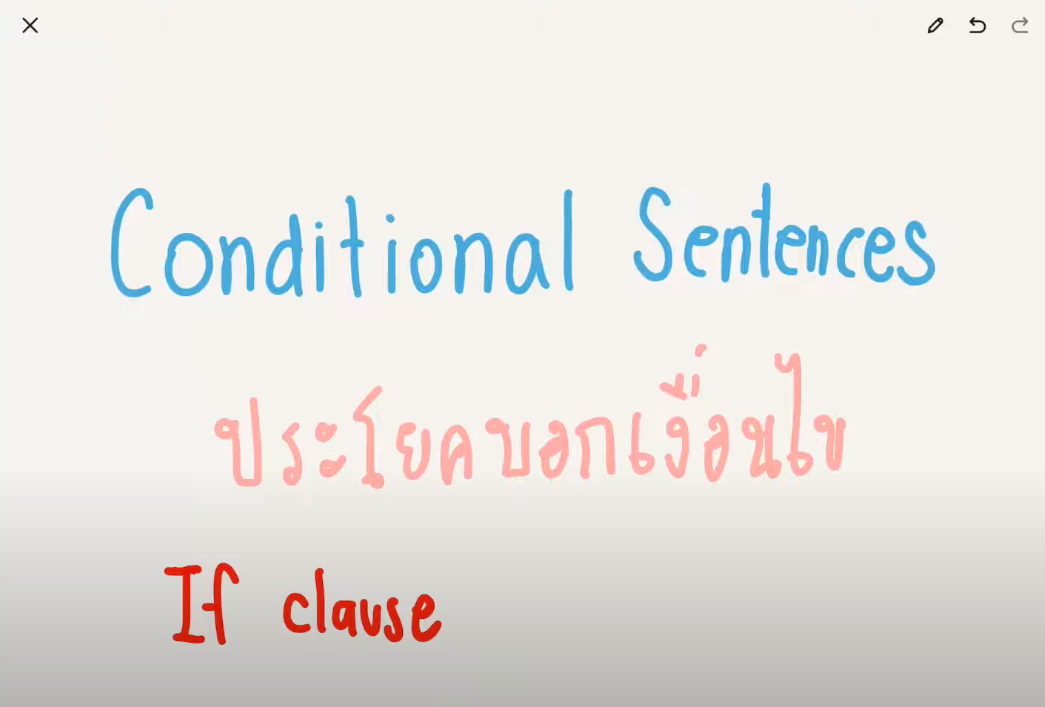 Conditional Sentences
ประโยคบอกเงื่อนไข
If clause